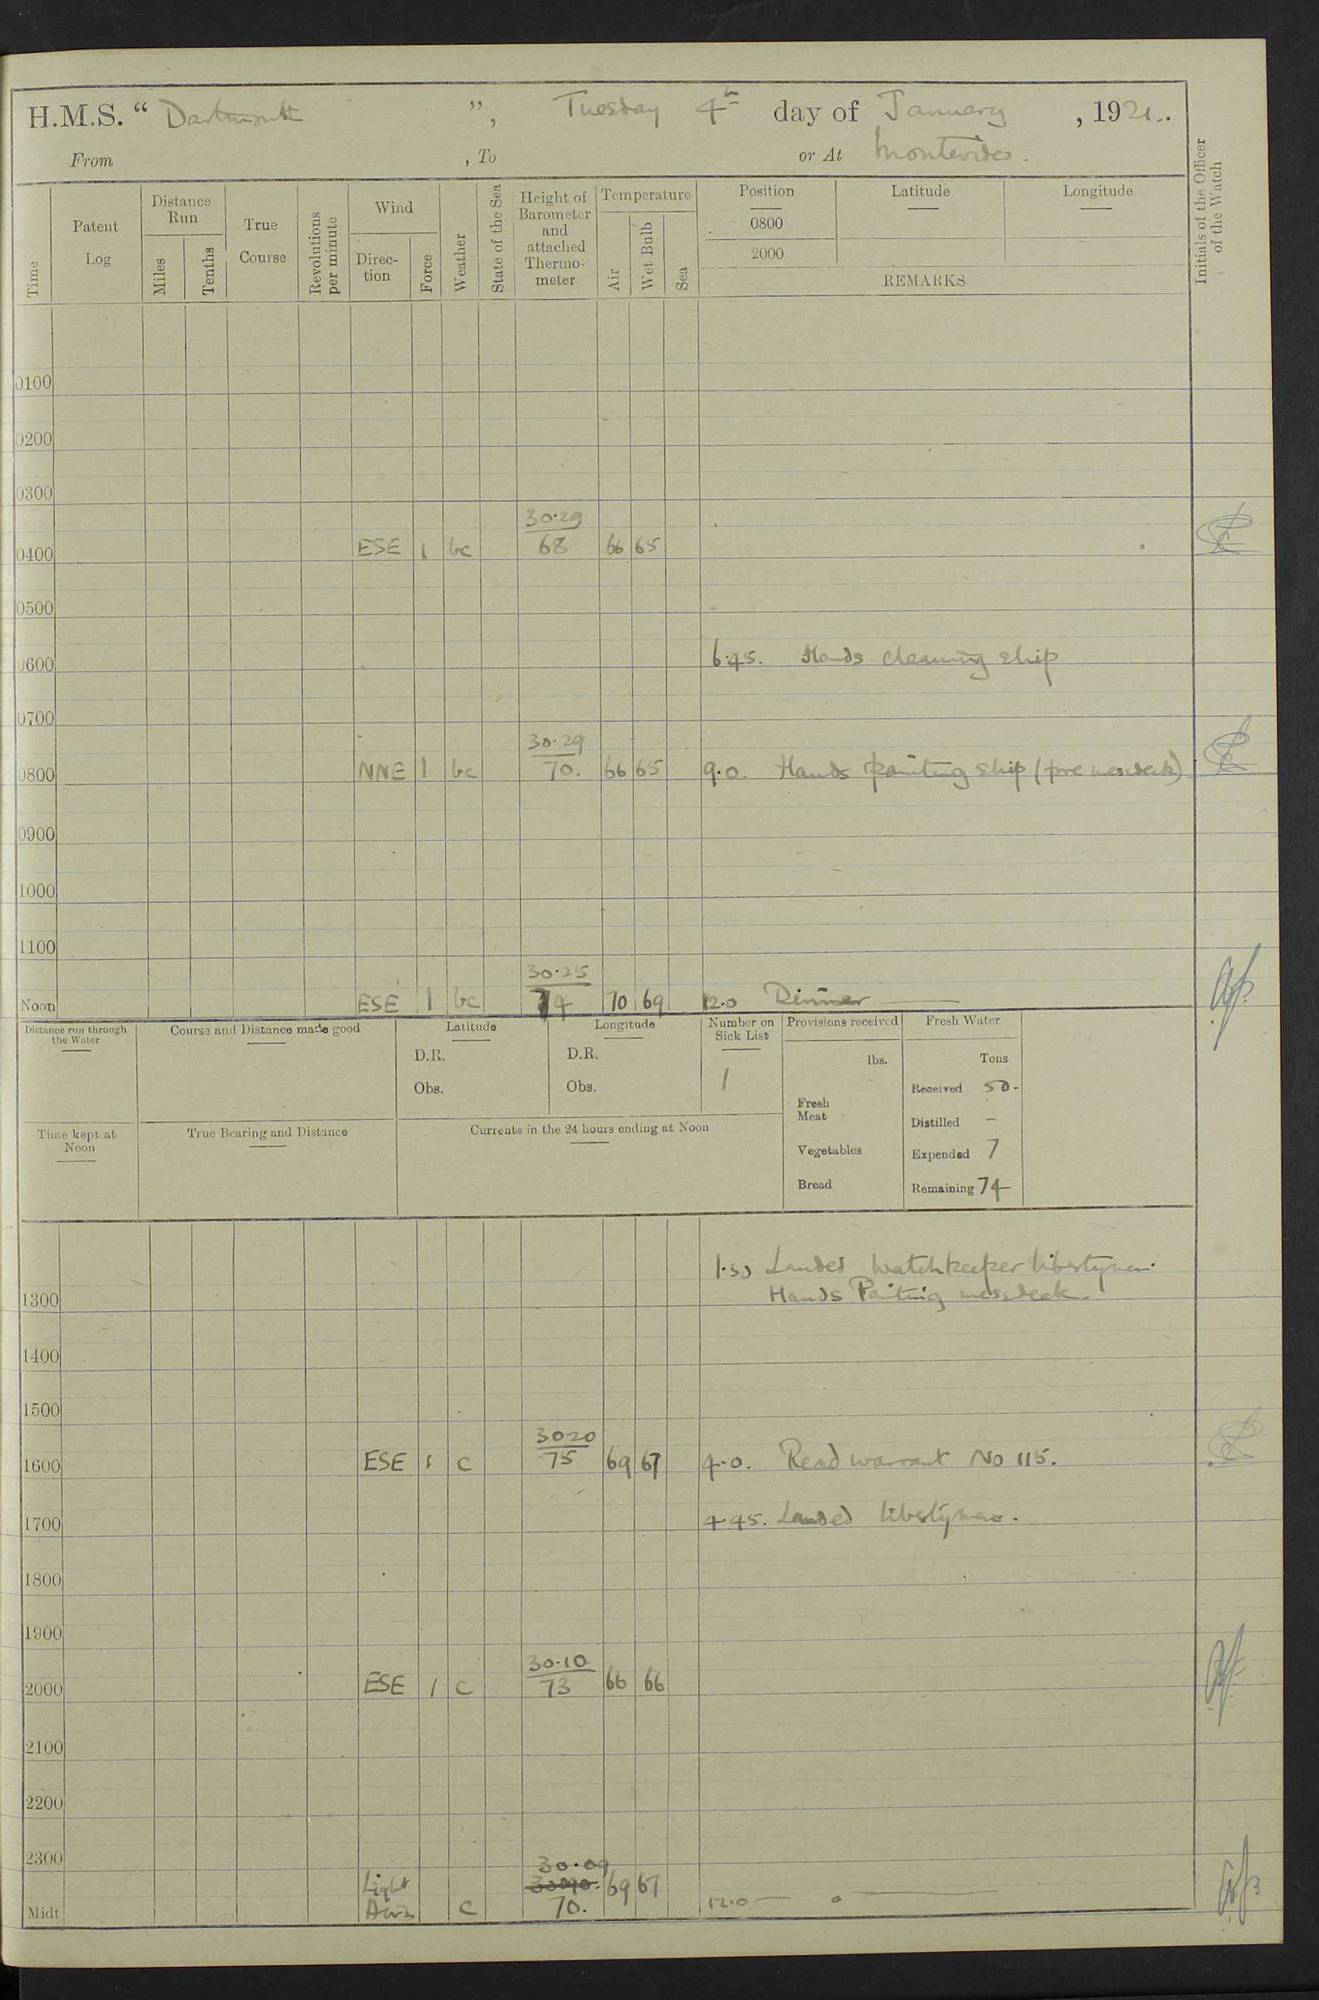 H.M.S. “ Dartmouth ”, Tuesday 4th day of January , 1921.
From , To or At Montevideo.
Time
Patent Log
Distance Run
Miles
Tenths
True Course
Revolutions per minute
Wind
Direction
Force
Weather
State of the Sea
Height of Barometer and attached Thermometer
Temperature
Air
Wet Bulb
Sea
Position Latitude Longitude
0800
2000
REMARKS
Initials of the Officer of the Watch
0100
0200
0300
30.29
0400 ESE 1 bc 68 66 65
0500
0600 6.45. Hands cleaning ship
0700
30.29
0800 NNE 1 bc 70. 66 65 9.0. Hands painting ship (fore messdeck)
0900
1000
1100
30.25
Noon ESE 1 bc 74 70 69 12.0 Dinner
Distance run through the Water
Course and Distance made good
Latitude
D.R.
Obs.
Longitude
D.R.
Obs.
Number on Sick List
1
Provisions received
lbs.
Fresh Meat
Vegetables
Bread
Fresh Water
Tons
Received 50-
Distilled –
Expended 7
Remaining 74
Time kept at Noon
True Bearing and Distance
Currents in the 24 hours ending at Noon
1.30 Landed watchkeeper libertymen.
1300 Hands Painting messdeck.
1400
1500
3020
1600 ESE 1 C 75 69 67 4.0. Read warrant No 115.
1700 4.45. Landed libertymen.
1800
1900
30.10
2000 ESE 1 C 73 66 66
2100
2200
2300
30.09
Light 69 67
Midt Airs C 70. 12.0